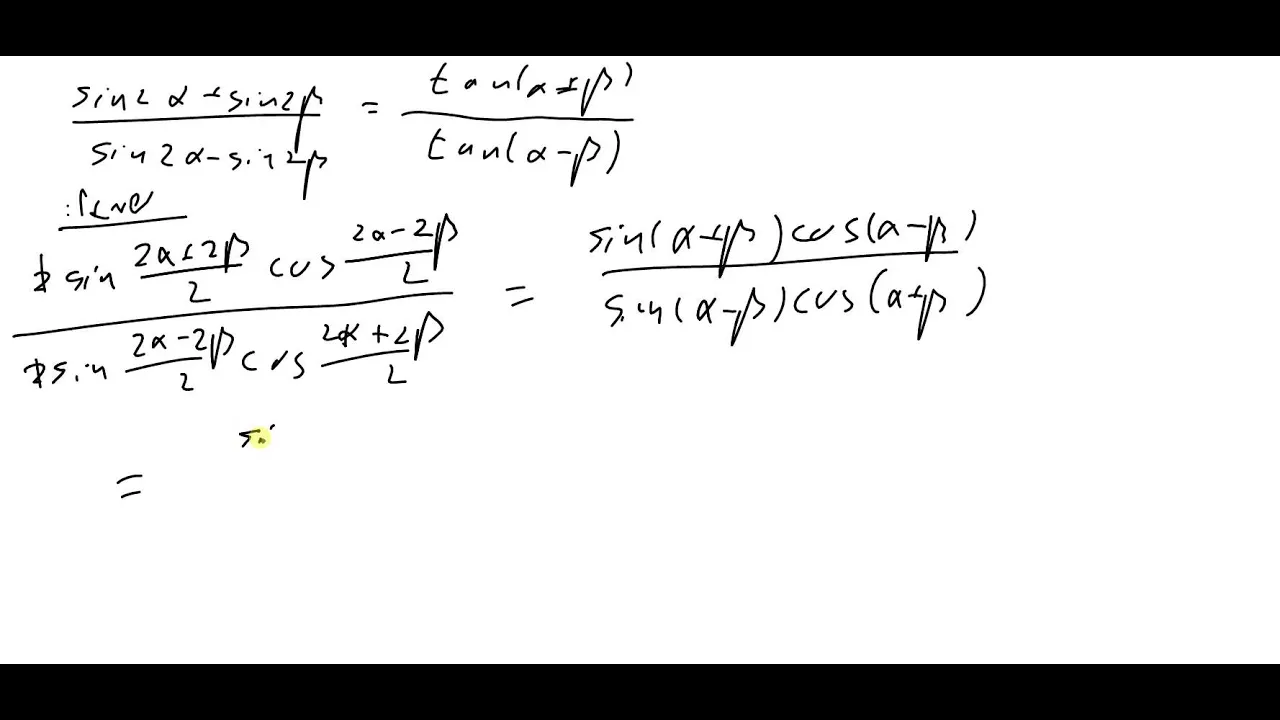 sin2α+sin2β / sin2α-sin2β = tan(α+β) / tan(α-β)
שמאל:
2 sin (2α+2β)/2 cos (2α-2β)/2 / 2 sin (2α-2β)/2 cos (2α+2β)/2 = sin(α+β)cos(α-β) / sin(α-β)cos(α+β)
= si